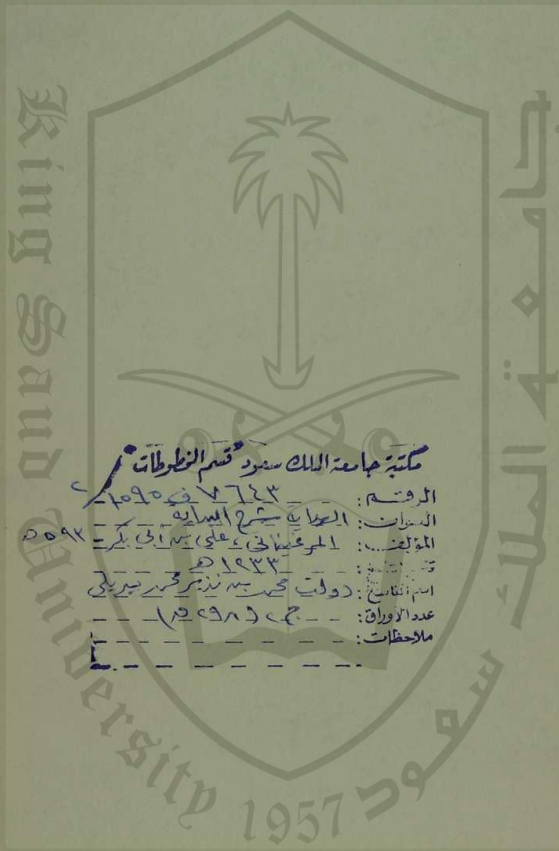 King Saud University 1957
جامعة الملك سعود
مكتبة جامعة الملك سعود "قسم المخطوطات"
الرقم: ٧٦٤٣
العنوان: الهداية شرح البداية
المؤلف: المرغيناني، علي بن أبي بكر - ٥٩٣ هـ
١٢٣٣ هـ
اسم الناسخ: دولت محمد بن نذير محمد
عدد الأوراق: ج ٢ (٢٩٨
ملاحظات: